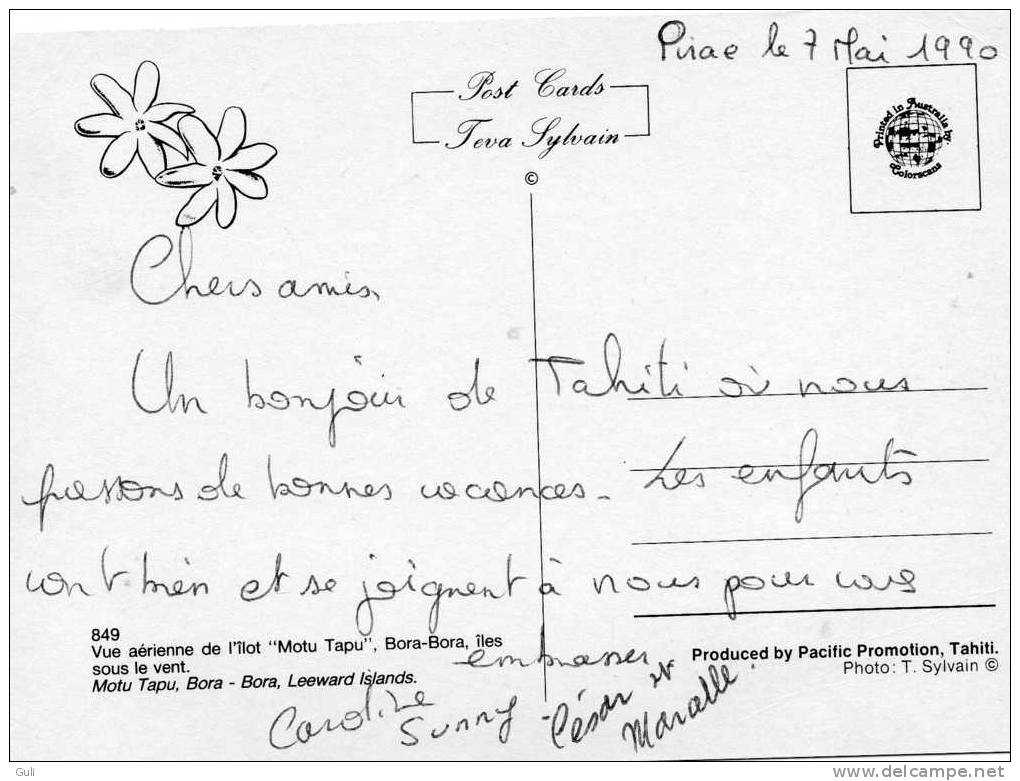 Pirae le 7 Mai 1990
Post Cards
Teva Sylvain
©
Printed in Australia by:
Colorscans
Chers amis,
Un bonjour de Tahiti où nous
passons de bonnes vacances. Les enfants
vont bien et se joignent à nous pour vous
embrasser
849
Vue aérienne de l'îlot "Motu Tapu", Bora-Bora, îles
sous le vent.
Motu Tapu, Bora - Bora, Leeward Islands.
Produced by Pacific Promotion, Tahiti.
Photo: T. Sylvain ©
Caroline
Sunny
César et
Marcelle.
Guli
delcampe.net